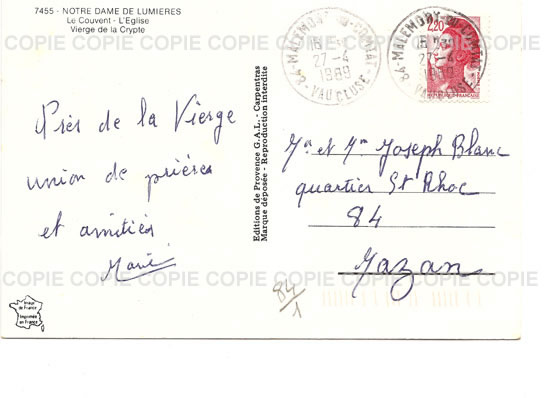 7455 - NOTRE DAME DE LUMIERES
Le Couvent - L'Eglise
Vierge de la Crypte
84-MALEMORT-DU-COMTAT
27-4
1989
VAUCLUSE
84-MALEMORT-DU-COMTAT
27-4
1989
VAUCLUSE
2,20
Près de la Vierge
union de prières
et amitiés
Marie
Editions de Provence G.A.L. - Carpentras
Marque déposée - Reproduction interdite
Mr et Mm Joseph Blanc
quartier St Rhoc
84
Mazan
84/1
Image
de France
Imprimée
en France
COPIE COPIE COPIE COPIE COPIE COPIE COPIE COPIE
COPIE COPIE COPIE COPIE COPIE COPIE COPIE COPIE